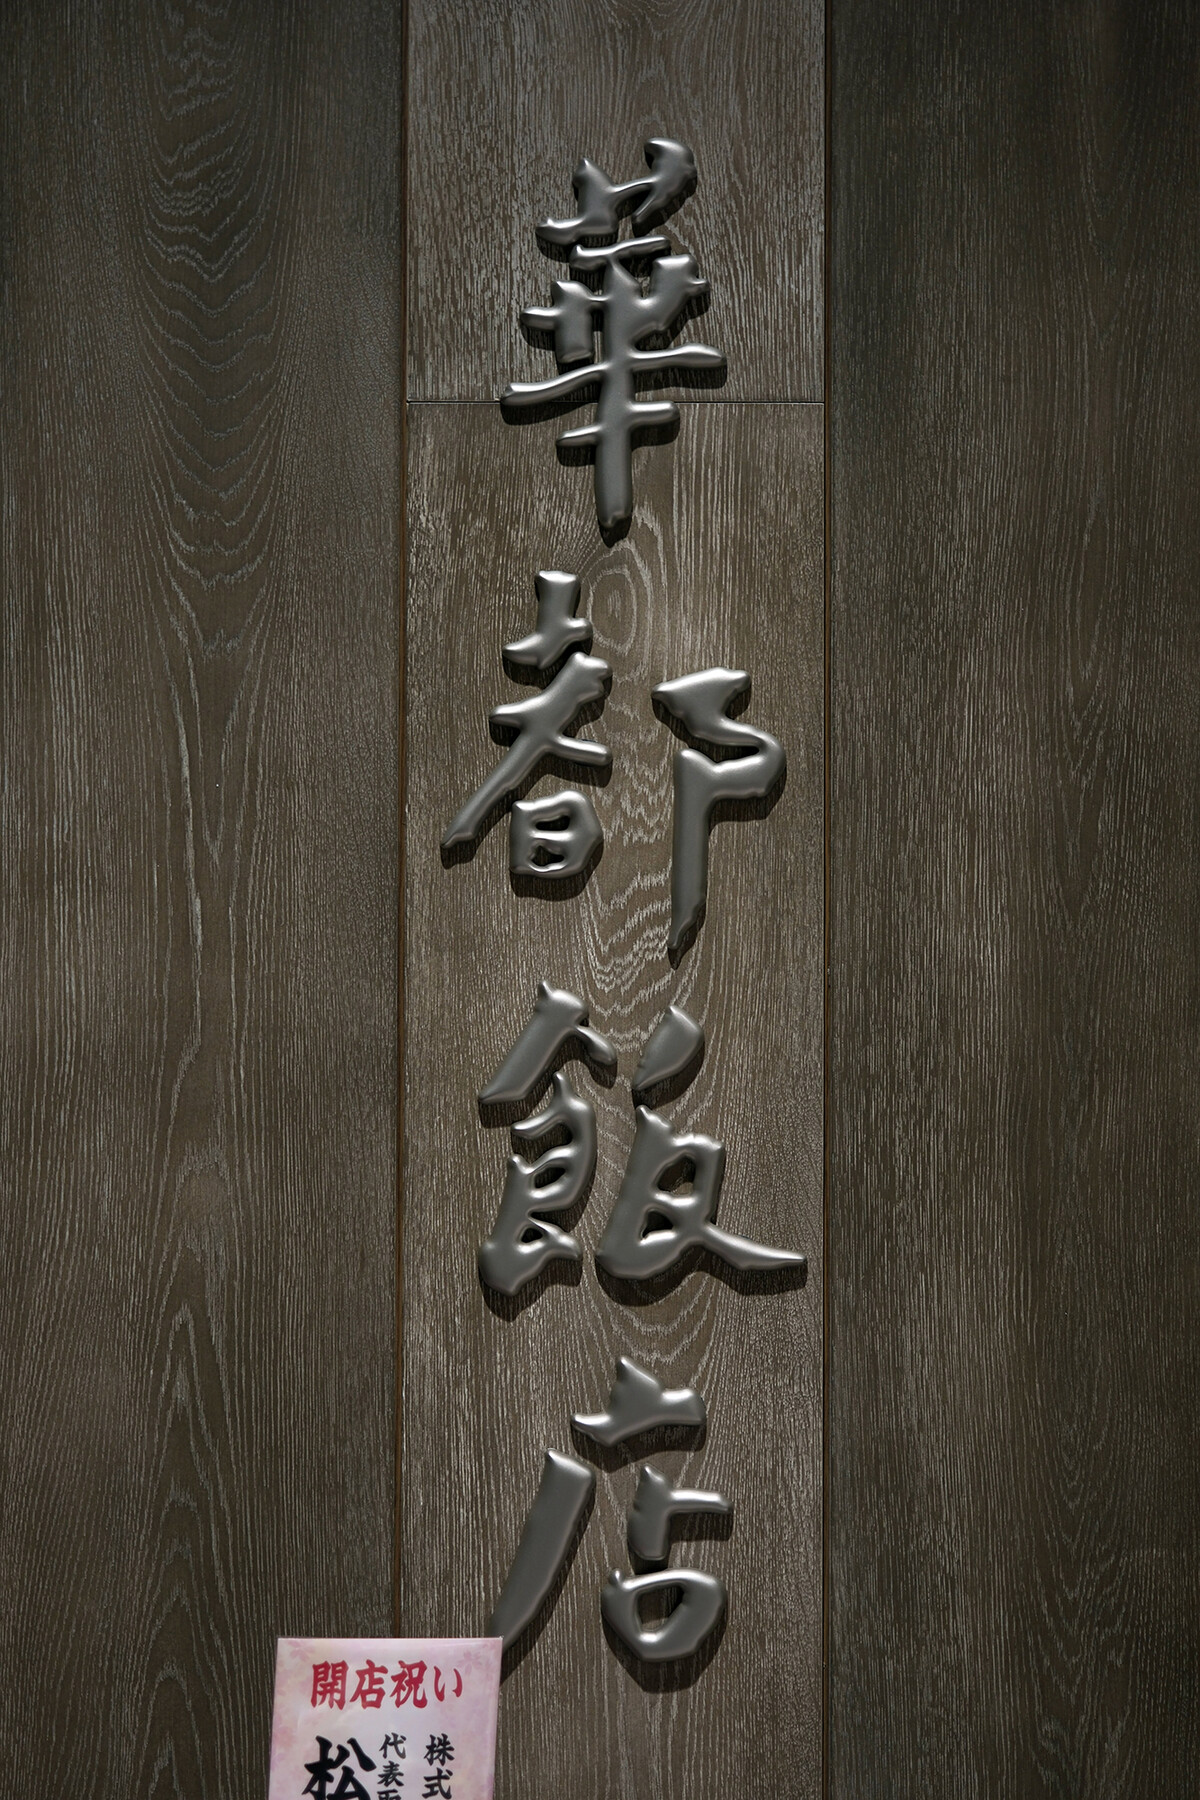 華都飯店
開店祝い
株式
代表
松